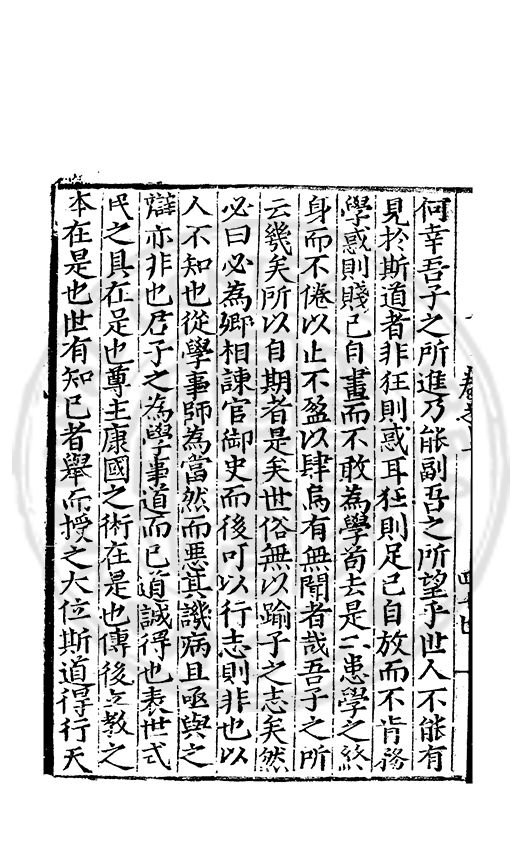 何幸吾子之所進乃能副吾之所望乎世人不能有
見於斯道者非狂則惑耳狂則足已自放而不肯務
學惑則賤已自畫而不敢為學苟去是二患學之終
身而不倦以止不盈以肆烏有無聞者哉吾子之所
云幾矣所以自期者是矣世俗無以踰子之志矣然
必曰必為卿相諫官御史而後可以行志則非也以
人不知也從學事師為當然而惡其譏病且亟與之
辯亦非也君子之為學事道而已道誠得也表世式
民之具在是也尊主康國之術在是也傳後立教之
本在是也世有知已者舉而授之大位斯道得行天